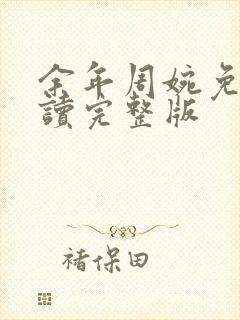 余年周婉免
讀完整版
褚保田